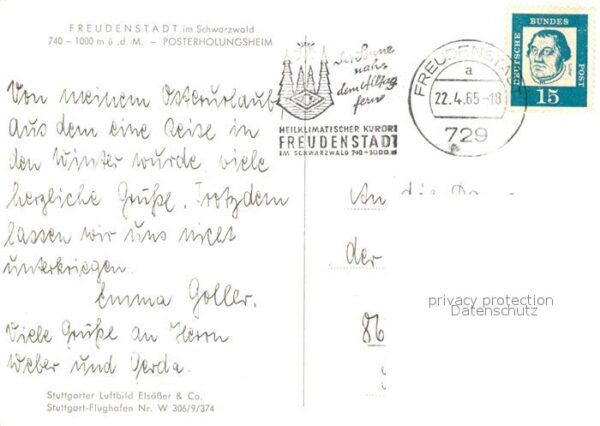 FREUDENSTADT im Schwarzwald
740 – 1000 m ü. d. M. – POSTERHOLUNGSHEIM
Von meinem Osterurlaub,
aus dem eine Reise in
den Winter wurde, viele
herzliche Grüße. Trotzdem
lassen wir uns nicht
unterkriegen.
Emma Goller.
Viele Grüße an Herrn
Weber und Gerda.
Stuttgarter Luftbild Elsäßer & Co.
Stuttgart-Flughafen Nr. W 306/9/374
der Sonne
nah,
dem Alltag
fern
HEILKLIMATISCHER KURORT
FREUDENSTADT
IM SCHWARZWALD 740-1000 m
FREUDENST
a
22.4.65-18
729
DEUTSCHE BUNDES POST
15
An die
der
86
privacy protection
Datenschutz